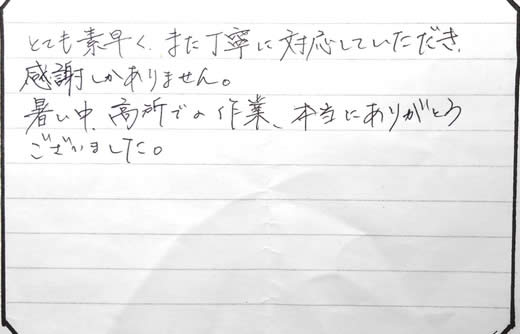 とても素早く、また丁寧に対応していただき、
感謝しかありません。
暑い中、高所での作業、本当にありがとう
ございました。